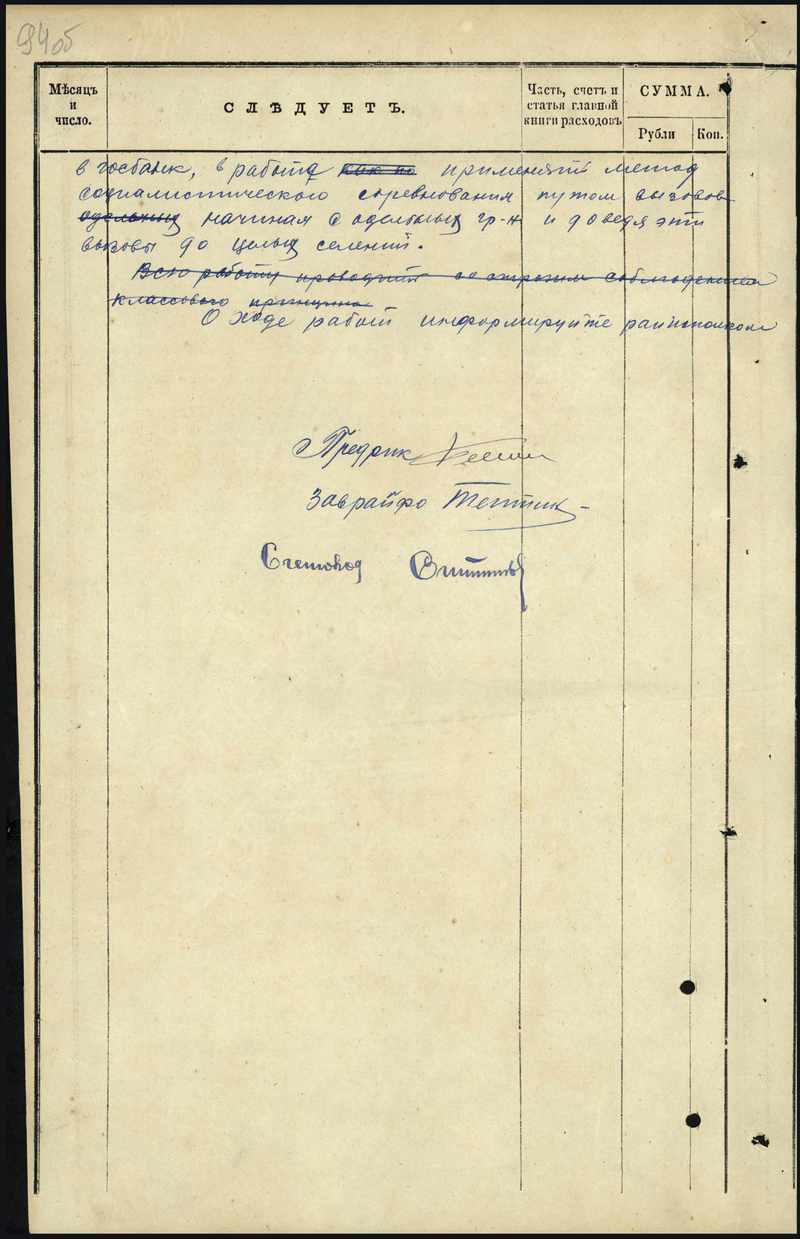 94об
Мѣсяцъ
и
число.
СЛѢДУЕТЪ.
Часть, счетъ и
статья главной
книги расходовъ
СУММА.
Рубли
Коп.
в госбанк, в работе как по применяти метод
социалистического соревнования путом вызовов
одельных начиная с одельных гр-н и доведя эти
вызовы до целых селений.
Всю работу проводить со строжим соблюдением
классового принципа
О ходе работ информируйте райисполком
Предрик
Заврайфо
Счетовод